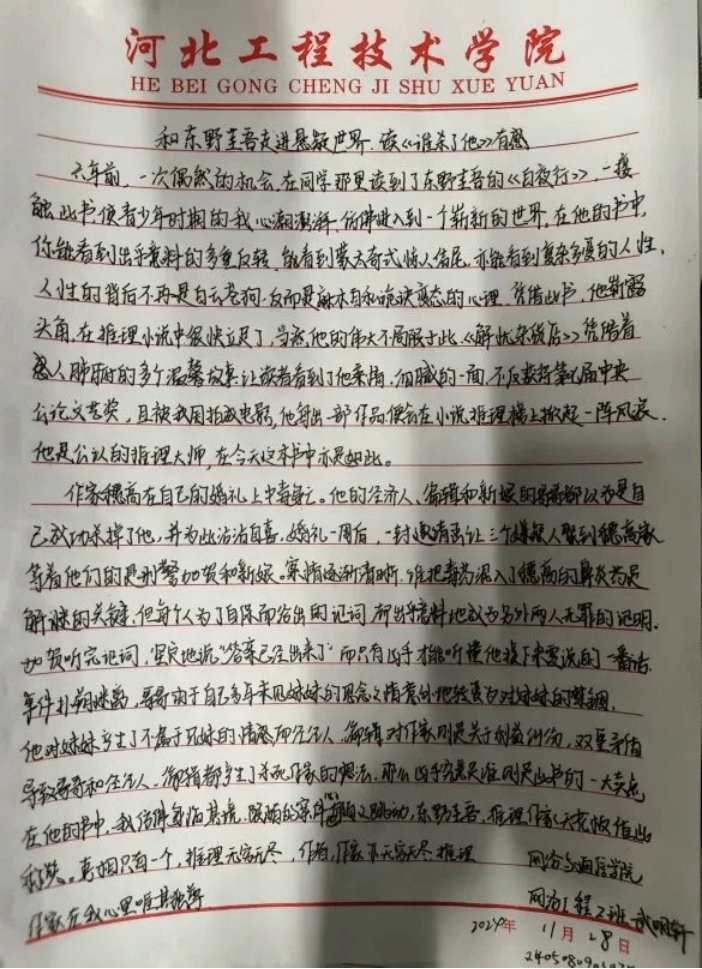 河北工程技术学院
HE BEI GONG CHENG JI SHU XUE YUAN
和东野圭吾走进悬疑世界.读《谁杀了他》有感
六年前,一次偶然的机会,在同学那里读到了东野圭吾的《白夜行》,一接
触此书,使青少年时期的我心潮澎湃,仿佛进入到一个崭新的世界,在他的书中,
你能看到出乎意料的多重反转,能看到蒙太奇式惊人结尾,亦能看到复杂多变的人性,
人性的背后不再是白云苍狗,反而是麻木自和诡谲变态的心理.凭借此书,他崭露
头角,在推理小说中很快立足了,当然,他的伟大不局限于此,《解忧杂货店》凭借着
感人肺腑的多个温馨故事,让读者看到了他柔情、细腻的一面,不仅获得第七届中央
公论文艺奖,且被我国拍成电影,他每出一部作品便会在小说推理榜上掀起一阵风浪.
他是公认的推理大师,在今天这本书中亦是如此。
作家穗高在自己的婚礼上中毒身亡。他的经济人、编辑和新娘的哥哥都以为是自
己成功杀掉了他,并为此沾沾自喜,婚礼一周后,一封邀请函让三个嫌疑人聚到穗高家
等着他们的是刑警加贺和新娘。案情逐渐清晰,谁把毒药混入了穗高的鼻炎药是
解谜的关键,但每个人为了自保而给出的证词,却出乎意料地成为另外两人无罪的证明.
加贺听完证词,坚定地说:"答案已经出来了"而只有凶手才能听懂他接下来要说的一番话.
案件扑朔迷离,哥哥由于自己多年未见妹妹的思念之情意外地转变为对妹妹的
他对妹妹产生了不属于兄妹的情感,而经纪人、编辑对作家则是关于利益纠纷,双重矛盾
导致哥哥和经纪人、编辑都产生了杀死作家的想法,那么凶手究竟是谁则是此书的一大卖点
在他的书中,我仿佛身临其境,跳动,东野圭吾,推理作家
真相只有一个,推理无穷无尽,作者,作家亦无穷无尽推理
网络与通信学院
作家在我心里唯其
网络工程2班
2024年11月28日